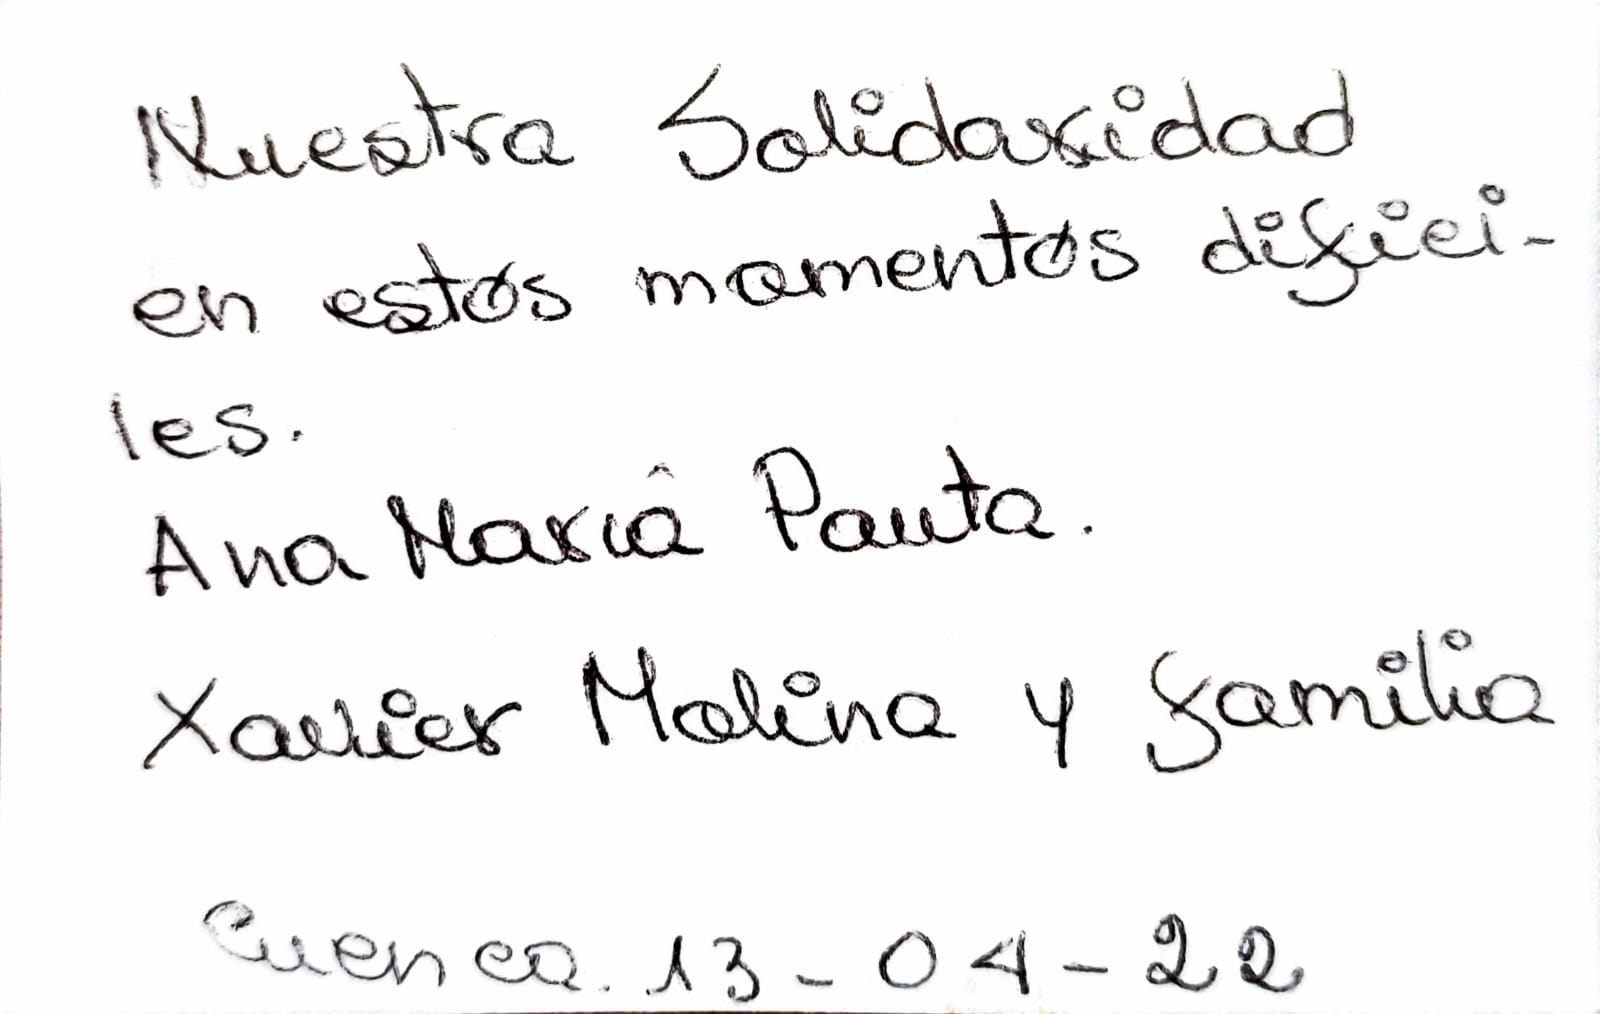 Nuestra Solidaridad
en estos momentos difici-
les.
Ana Marîa Pauta.
Xavier Molina y familia
Cuenca. 13 - 04 - 22